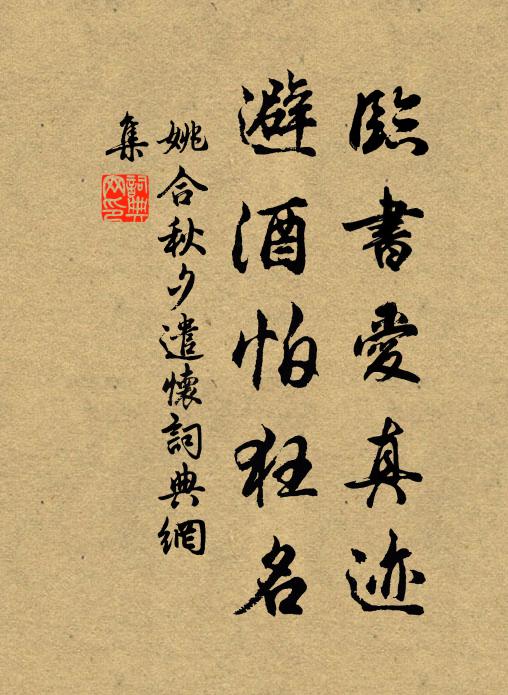 臨書愛真迹
避酒怕狂名
姚合秋夕遣懷詞典網
集
詞典
網印